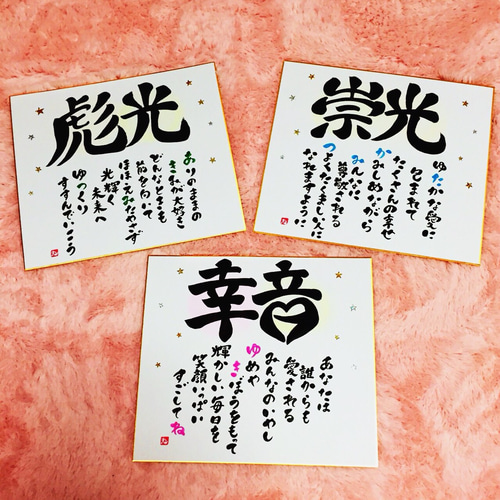 彪光
ありのままの
きみが大好き
どんなときも
前を向いて
ほほえみたやさず
光輝く
未来へ
ゆっくり
すすんでいこう
崇光
ゆたかな愛に
包まれて
たくさんの幸せ
かみしめながら
みんなに
尊敬される
つよくたくましい人に
なれますように
幸音
あなたは
誰からも
愛される
みんなのいやし
ゆめや
きぼうをもって
輝かしい毎日を
笑顔いっぱい
すごしてね